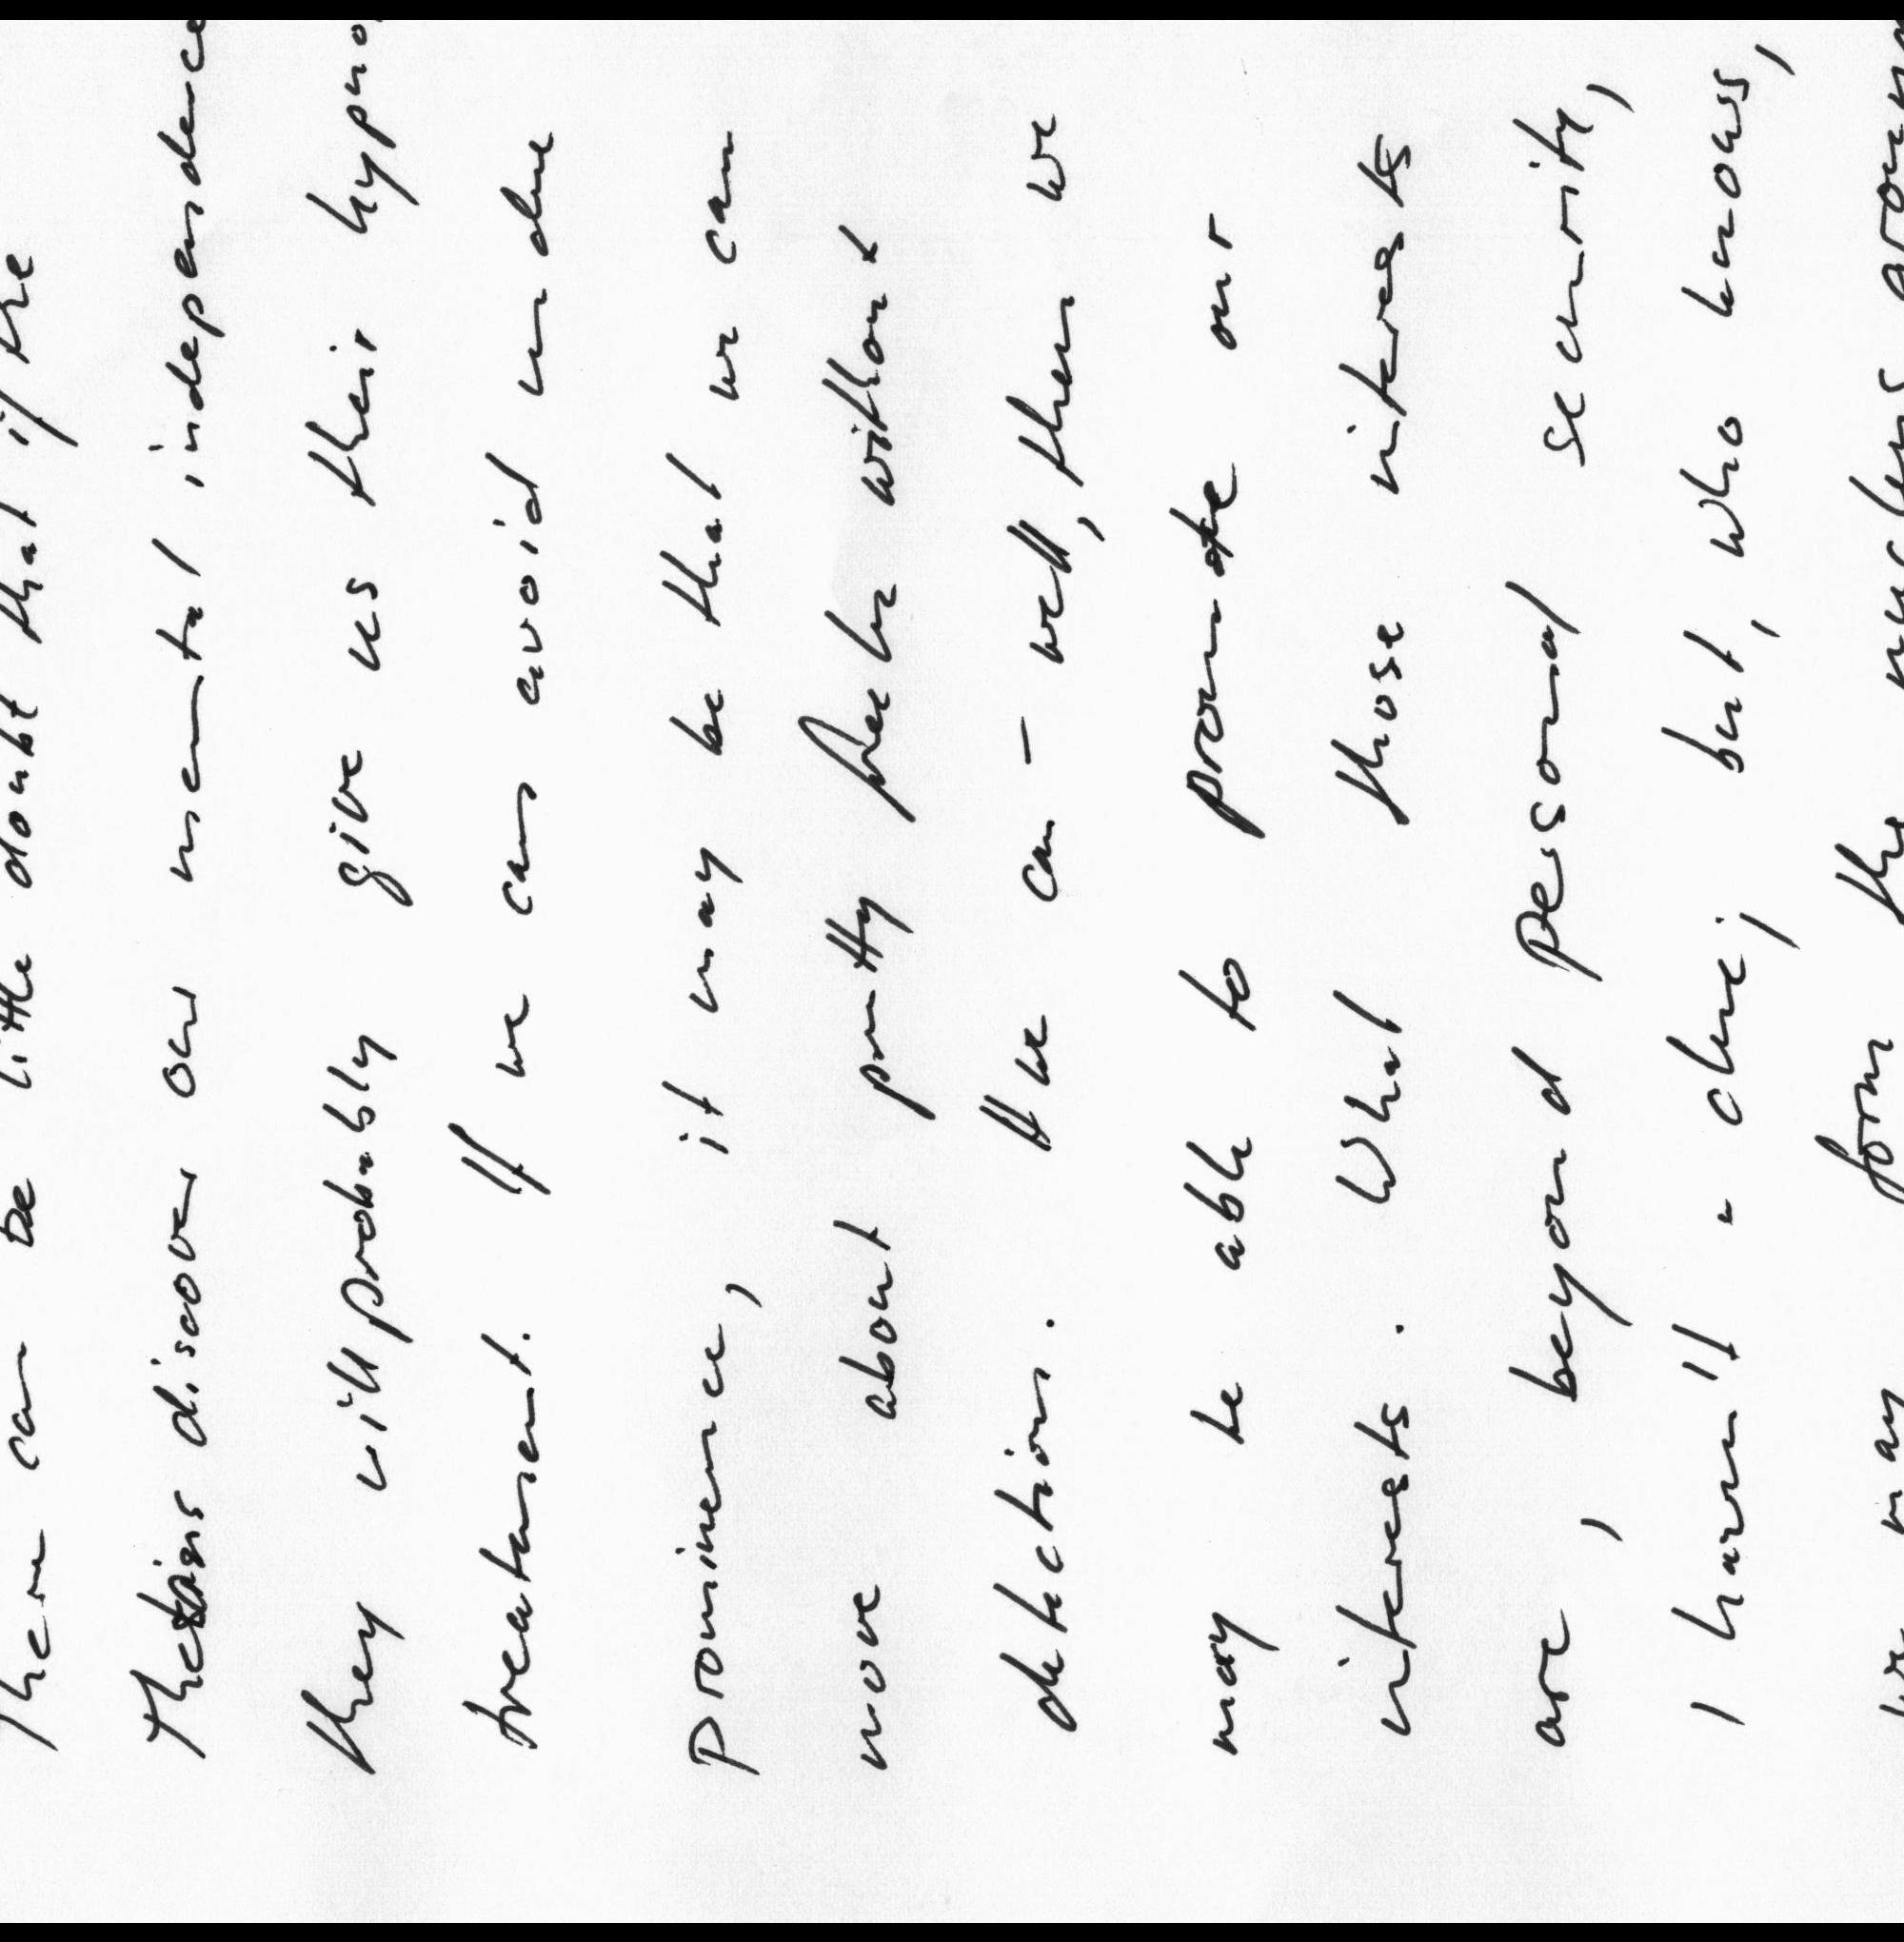 There can be little doubt that if the
Thetans discover our mental independence
they will probably give us their hypno
treatment. If we can avoid undue
prominence, it may be that we can
move about pretty freely without
detection. If we can - well, then we
may be able to promote our
interests. What those interests
are, beyond personal security,
I haven't a clue; but, who knows,
we may form the nucleus around